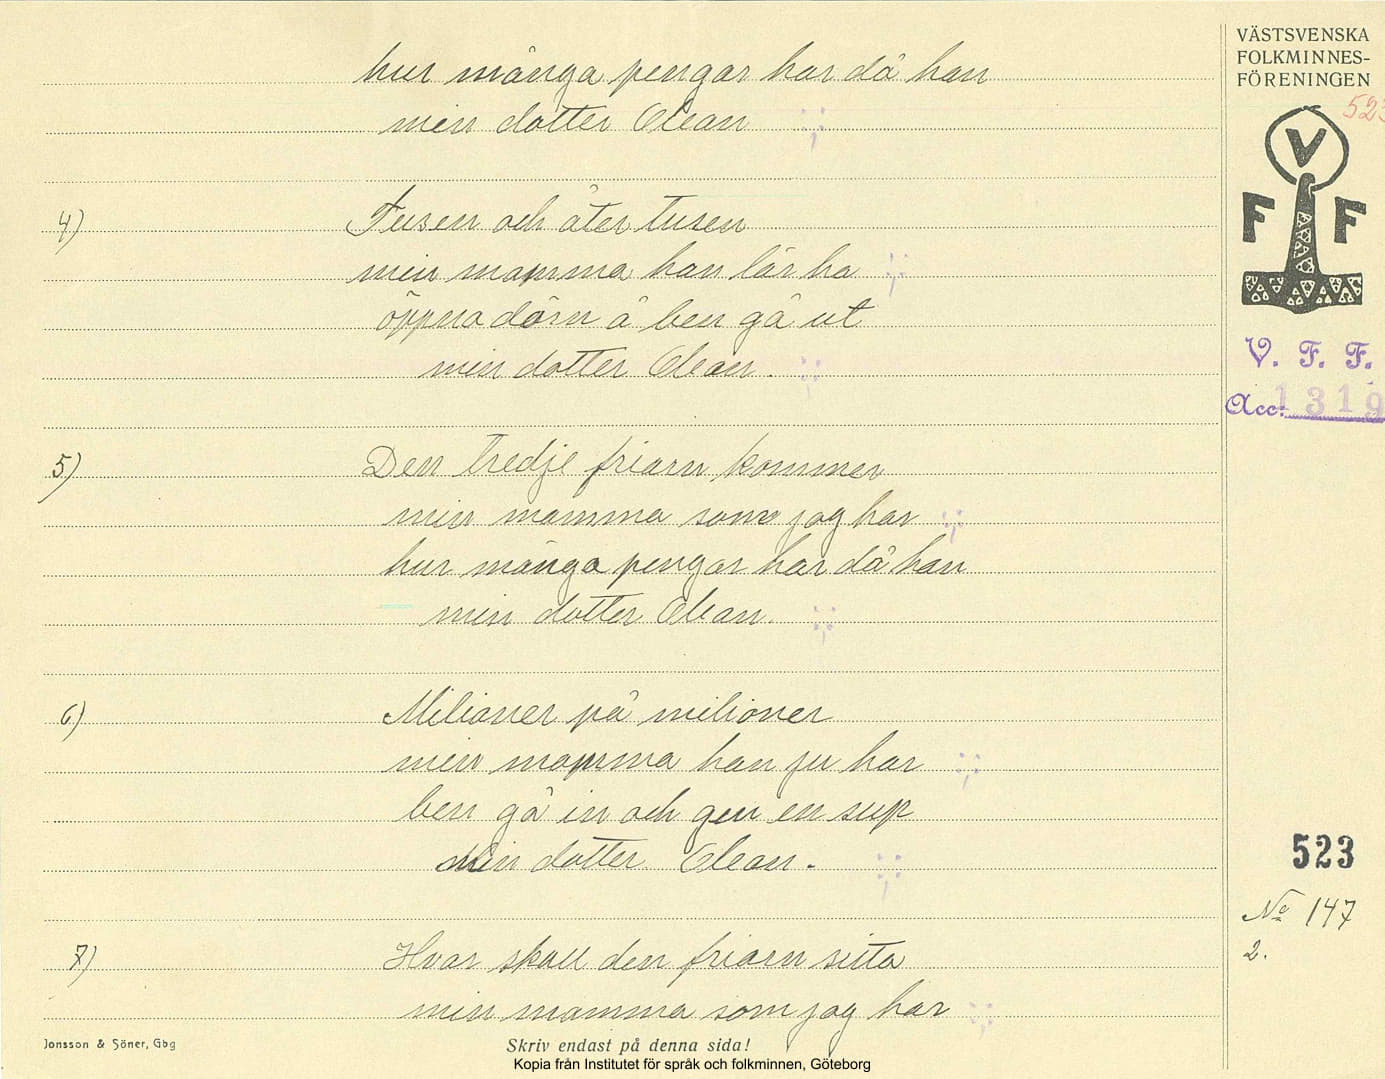 hur många pengar har då han
min dotter Elean
4) Tusen och åter tusen
min mamma han lär ha
öppna dörn å ben gå ut
min dotter Elean.
5) Den tredje friarn kommer
min mamma som jag har
hur många pengar har då han
min dotter Elean.
6) Milioner på milioner
min mamma han ju har
ben gå in och gen en sup
Min dotter Elean.
7) Hvar skall den friarn sitta
min mamma som jag har
Jonsson & Söner, Gbg
Skriv endast på denna sida!
Kopia från Institutet för språk och folkminnen, Göteborg
VÄSTSVENSKA
FOLKMINNES-
FÖRENINGEN
523
V
F F
V. F. F.
Acc. 1319
523
No 147
2.